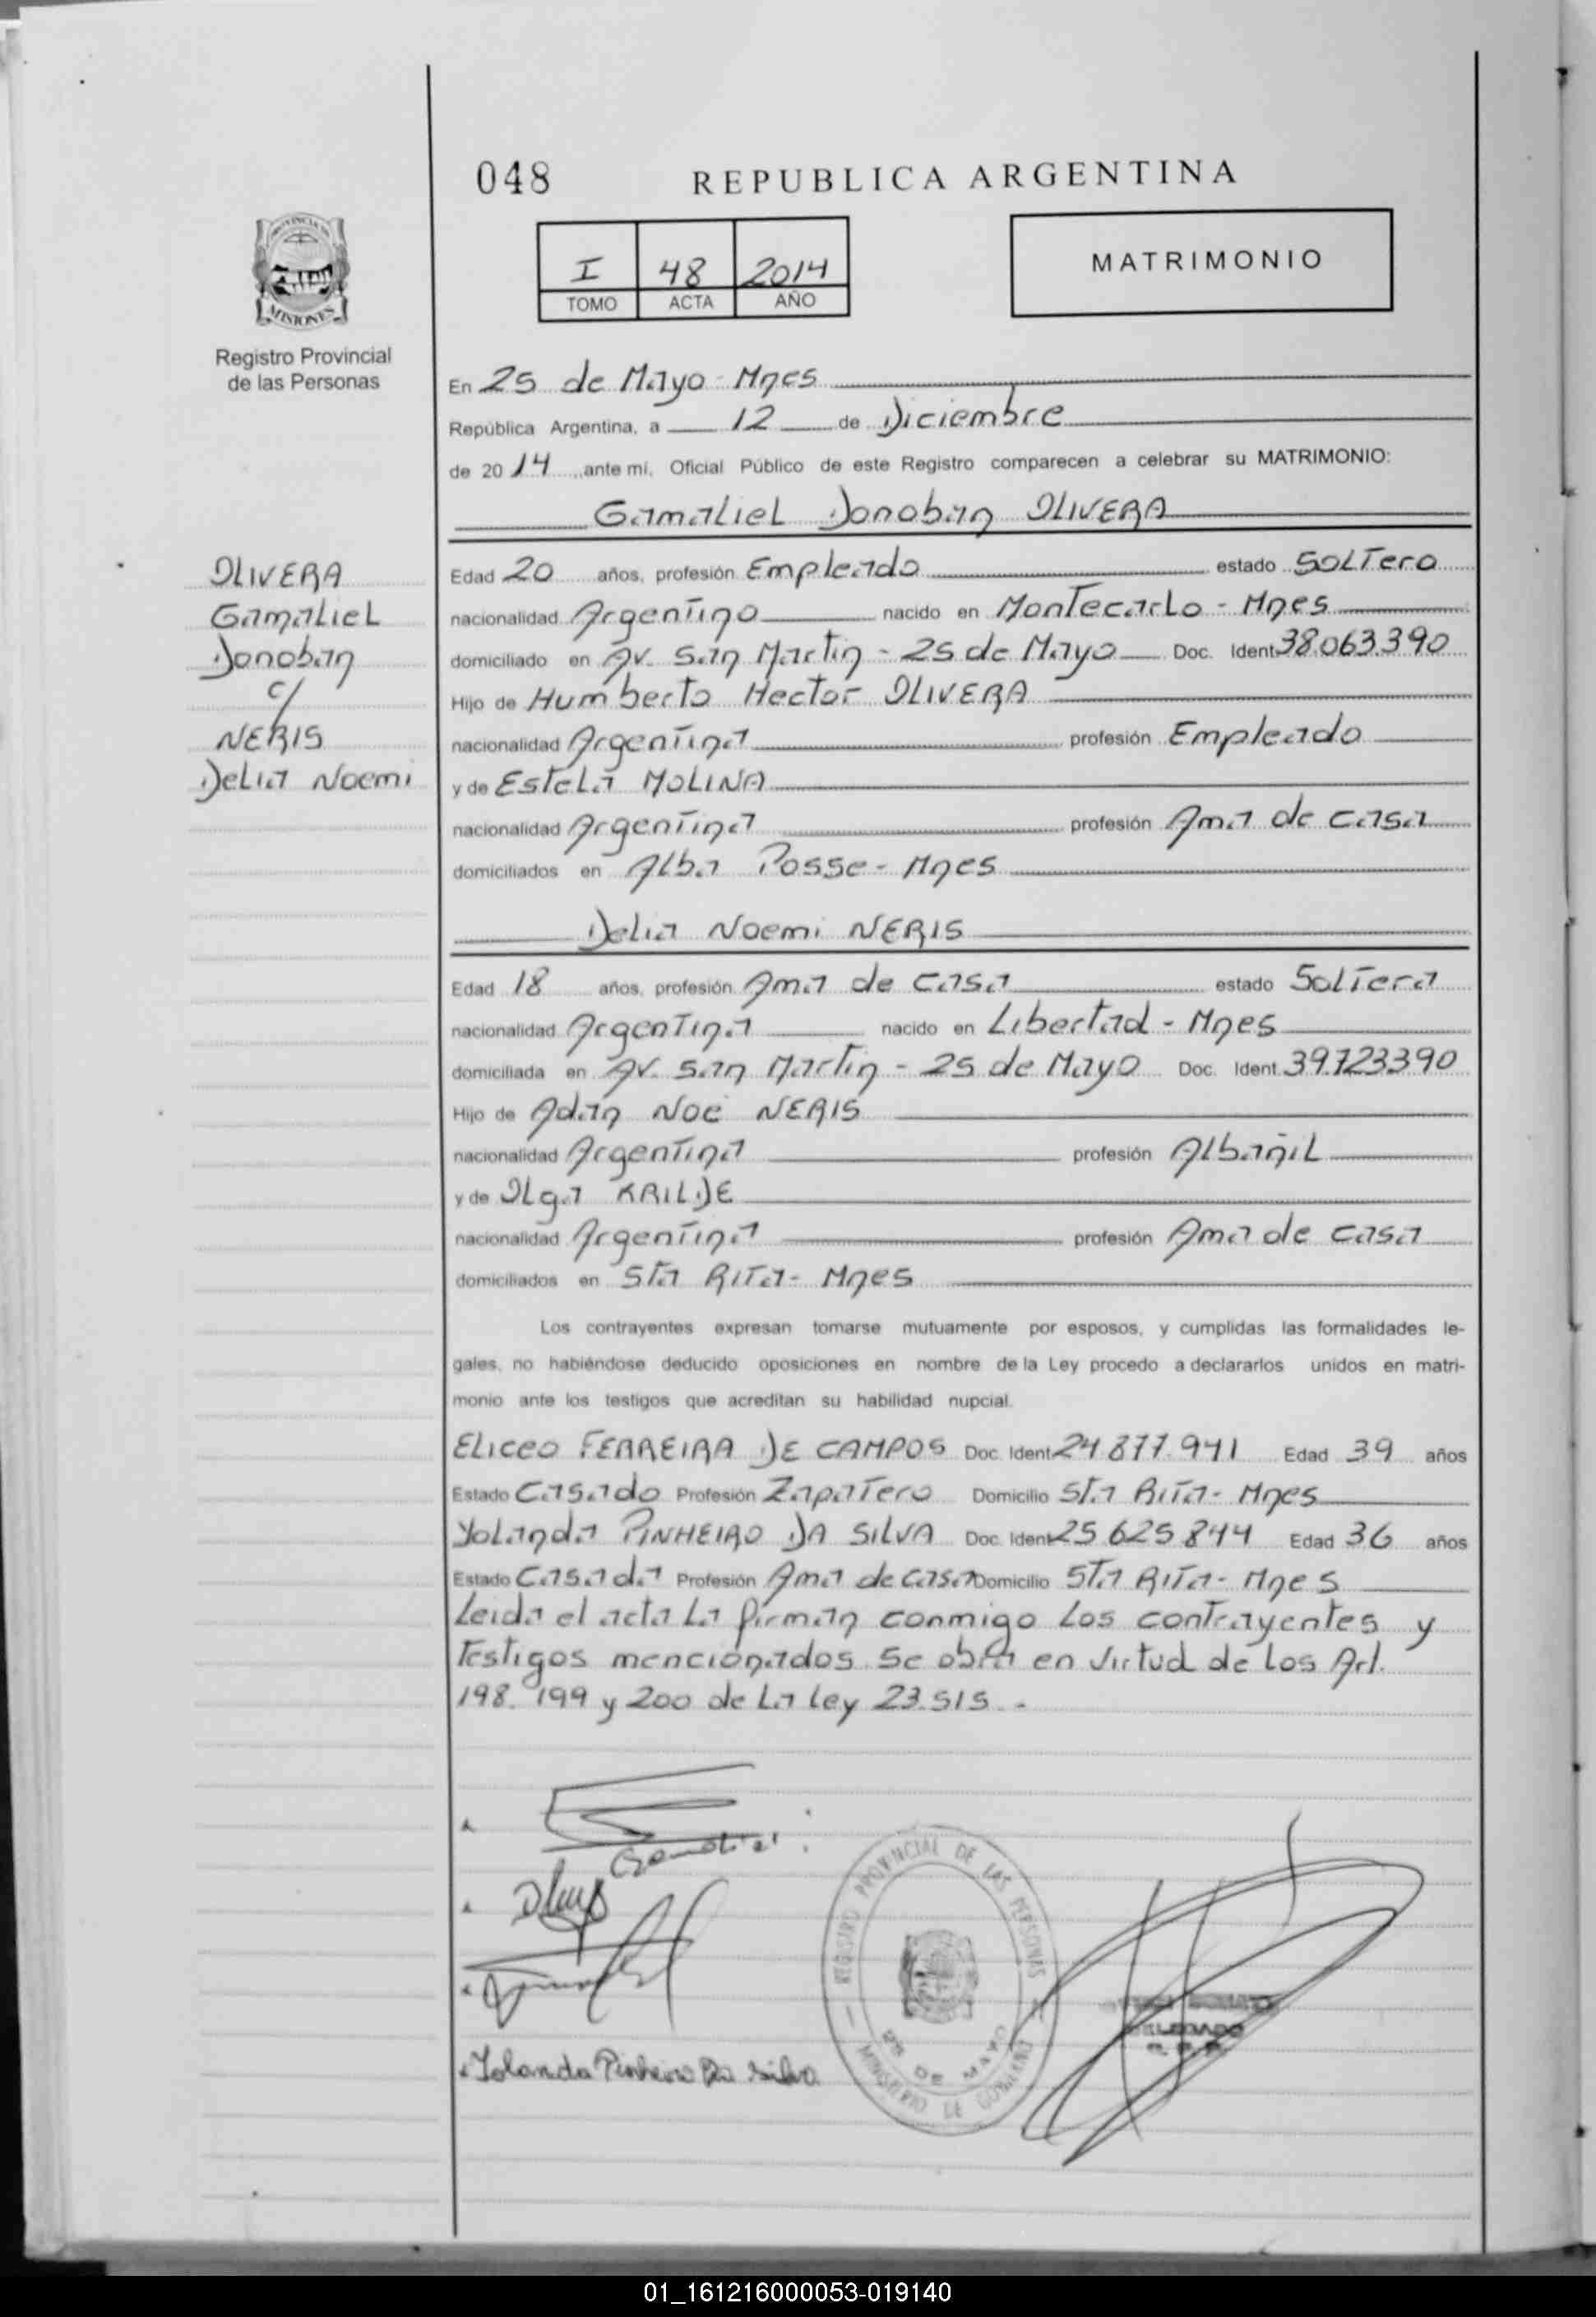 048 REPUBLICA ARGENTINA
PROVINCIA DE
MISIONES
Registro Provincial
de las Personas
I 48 2014
TOMO ACTA AÑO
MATRIMONIO
En 25 de Mayo - Mnes
República Argentina, a 12 de Diciembre
de 2014 ante mi, Oficial Público de este Registro comparecen a celebrar su MATRIMONIO:
Gamaliel Donoban OLIVERA
OLIVERA
Gamaliel
Donoban
c/
NERIS
Delia Noemi
Edad 20 años, profesión Empleado estado Soltero
nacionalidad Argentino nacido en Montecarlo - Mnes
domiciliado en Av. San Martin - 25 de Mayo Doc. Ident. 38.063.390
Hijo de Humberto Hector OLIVERA
nacionalidad Argentina profesión Empleado
y de Estela MOLINA
nacionalidad Argentina profesión Ama de casa
domiciliados en Alba Posse - Mnes
Delia Noemi NERIS
Edad 18 años, profesión Ama de casa estado Soltera
nacionalidad Argentina nacido en Libertad - Mnes
domiciliada en Av. San Martin - 25 de Mayo Doc. Ident. 39.723.390
Hijo de Adan Noé NERIS
nacionalidad Argentina profesión Albañil
y de Olga KRILDE
nacionalidad Argentina profesión Ama de casa
domiciliados en Sta Rita - Mnes
Los contrayentes expresan tomarse mutuamente por esposos, y cumplidas las formalidades le-
gales, no habiéndose deducido oposiciones en nombre de la Ley procedo a declararlos unidos en matri-
monio ante los testigos que acreditan su habilidad nupcial.
Eliceo FERREIRA DE CAMPOS Doc. Ident. 24.877.941 Edad 39 años
Estado Casado Profesión Zapatero Domicilio Sta Rita - Mnes
Yolanda PINHEIRO DA SILVA Doc. Ident. 25.625.844 Edad 36 años
Estado Casada Profesión Ama de casa Domicilio Sta Rita - Mnes
Leida el acta la firman conmigo los contrayentes y
testigos mencionados se obra en virtud de los Art.
198. 199 y 200 de la ley 23.515. -
REGISTRO PROVINCIAL DE LAS PERSONAS
25 DE MAYO
MINISTERIO DE GOBIERNO
DELEGADO
Yolanda Pinheiro Da Silva
01_161216000053-019140